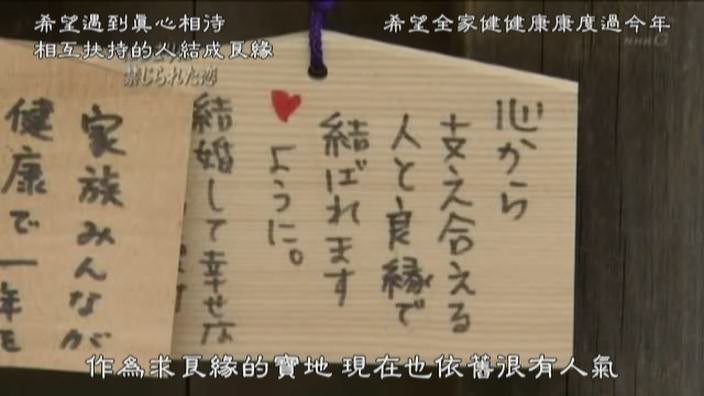 希望遇到眞心相待
相互扶持的人結成良緣
希望全家健健康康度過今年
禁じられた恋
NHK G
心から
支え合える
人と良縁で
結ばれます
♥ように。
結婚して幸せな
家族みんなが
健康で一年を
作為求良緣的寶地 現在也依舊很有人氣